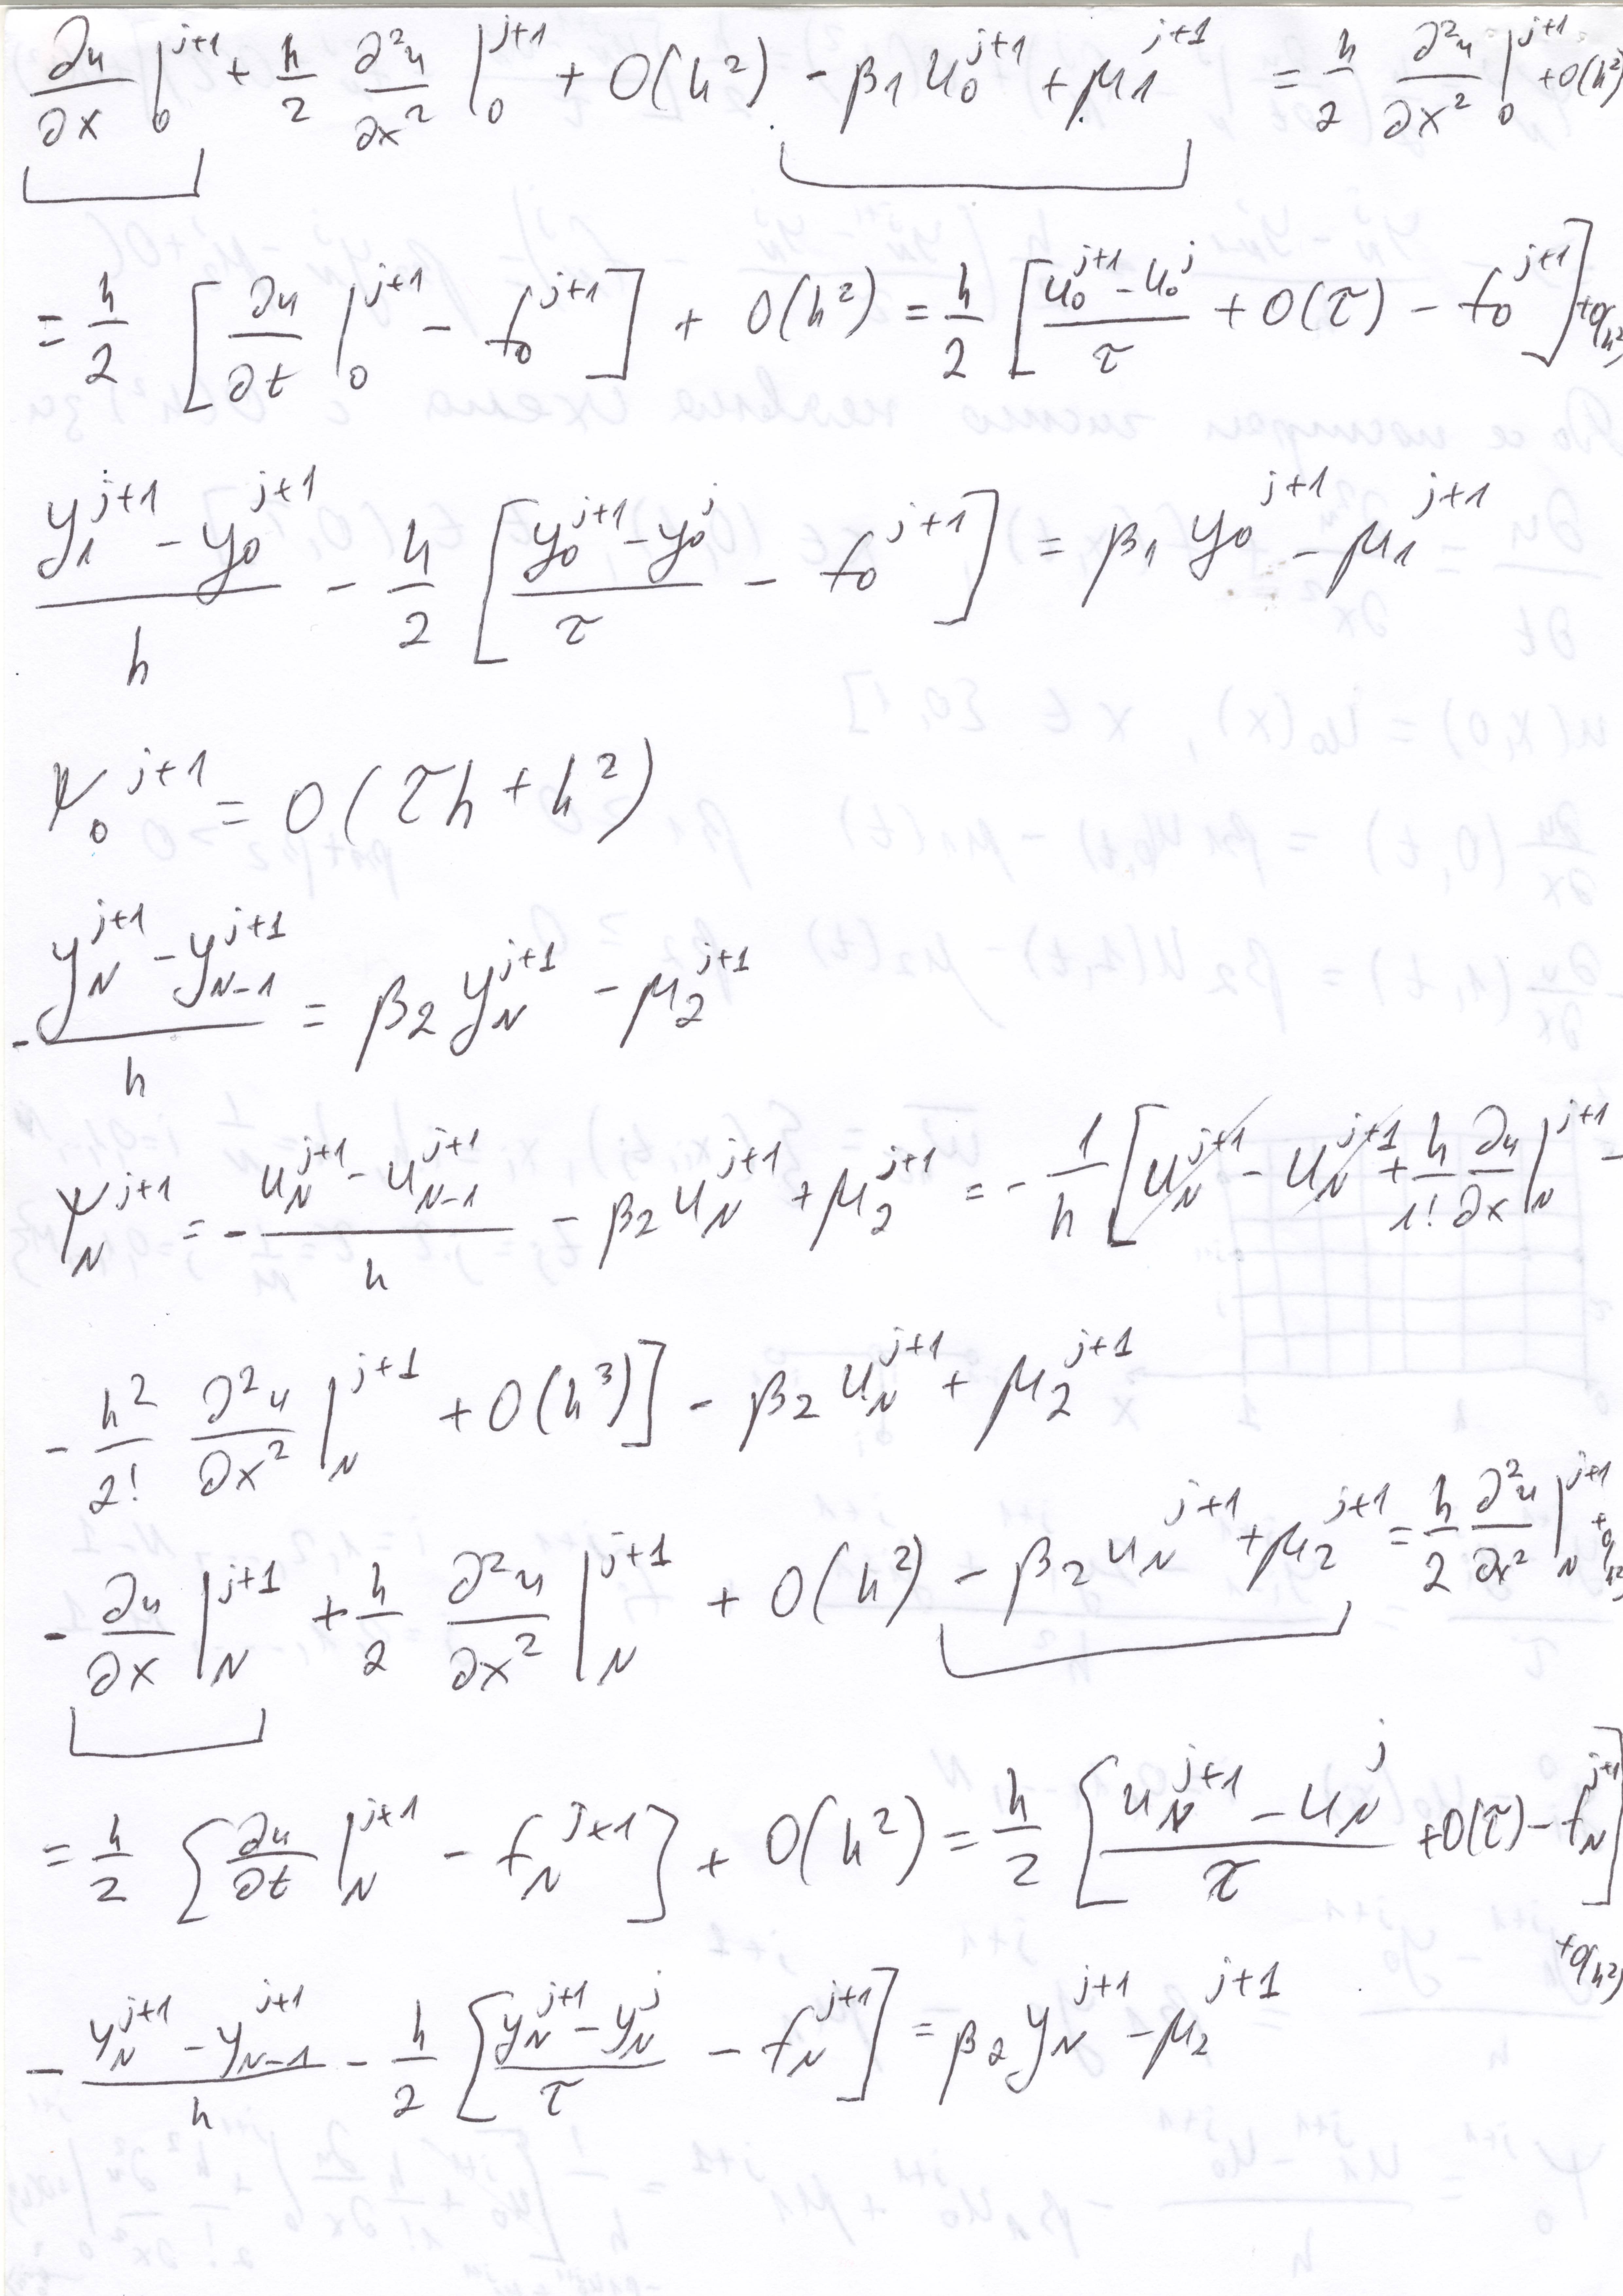 ∂u/∂x |_0^{j+1} + h/2 ∂²u/∂x² |_0^{j+1} + O(h²) - β_1 u_0^{j+1} + μ_1^{j+1} = h/2 ∂²u/∂x² |_0^{j+1} + O(h²)
= h/2 [ ∂u/∂t |_0^{j+1} - f_0^{j+1} ] + O(h²) = h/2 [ (u_0^{j+1} - u_0^j)/τ + O(τ) - f_0^{j+1} ] + O(h²)
(y_1^{j+1} - y_0^{j+1})/h - h/2 [ (y_0^{j+1} - y_0^j)/τ - f_0^{j+1} ] = β_1 y_0^{j+1} - μ_1^{j+1}
ψ_0^{j+1} = O(τh + h²)
- (y_N^{j+1} - y_{N-1}^{j+1})/h = β_2 y_N^{j+1} - μ_2^{j+1}
ψ_N^{j+1} = - (u_N^{j+1} - u_{N-1}^{j+1})/h - β_2 u_N^{j+1} + μ_2^{j+1} = - 1/h [ u_N^{j+1} - u_N^{j+1} + h/1! ∂u/∂x |_N^{j+1} -
- h²/2! ∂²u/∂x² |_N^{j+1} + O(h³) ] - β_2 u_N^{j+1} + μ_2^{j+1}
- ∂u/∂x |_N^{j+1} + h/2 ∂²u/∂x² |_N^{j+1} + O(h²) - β_2 u_N^{j+1} + μ_2^{j+1} = h/2 ∂²u/∂x² |_N^{j+1} + O(h²)
= h/2 [ ∂u/∂t |_N^{j+1} - f_N^{j+1} ] + O(h²) = h/2 [ (u_N^{j+1} - u_N^j)/τ + O(τ) - f_N^{j+1} ] + O(h²)
- (y_N^{j+1} - y_{N-1}^{j+1})/h - h/2 [ (y_N^{j+1} - y_N^j)/τ - f_N^{j+1} ] = β_2 y_N^{j+1} - μ_2^{j+1}